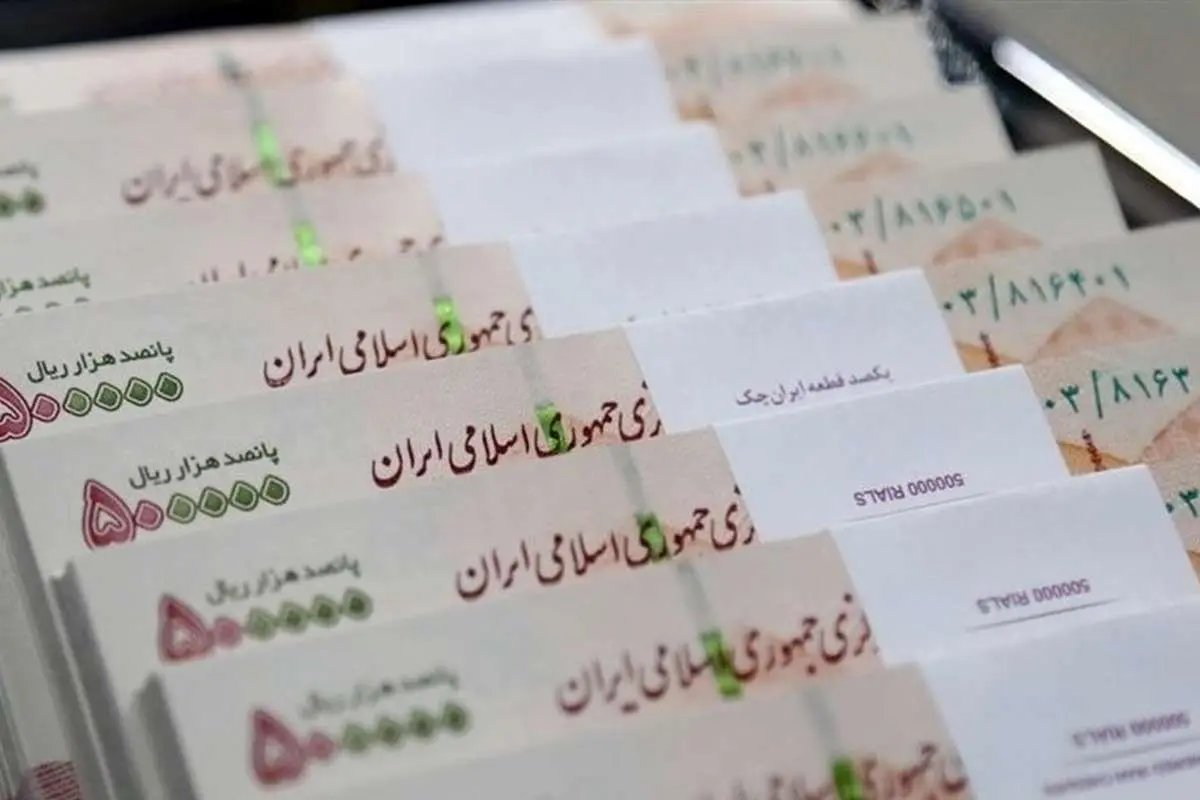 پانصد
جمهوری اسلامی ایران
۰۳/۸۱۶۶۰۱
پانصد هزار
۰۳/۸۱۶۵۰۱
پانصد هزار ریال
۵۰۰۰۰۰
جمهوری اسلامی ایران
۰۳/۸۱۶۴۰۱
پانصد هزار ریال
۵۰۰۰۰۰
جمهوری اسلامی ایران
یکصد قطعه ایران چک
۰۳/۸۱۶۳
پانصد هزار ریال
۵۰۰۰۰۰
جمهوری اسلامی ایران
500000 RIALS
۰۳
پانصد هزار ریال
۵۰۰۰۰۰
جمهوری اسلامی ایران
500000 RIALS
جمهوری اسلامی ایران
500000 RIALS